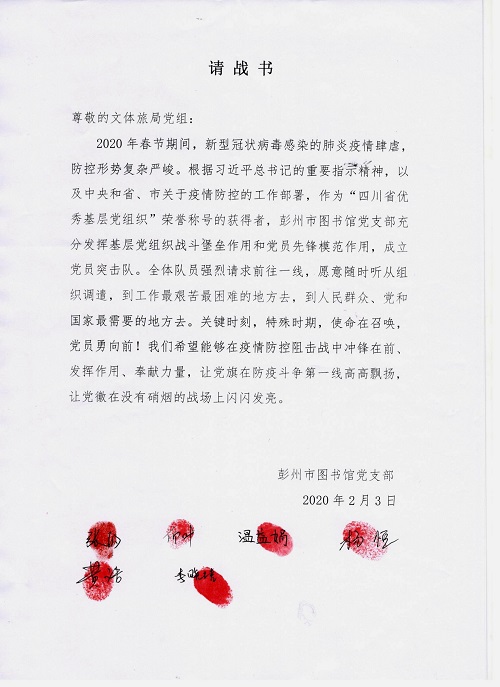 请战书
尊敬的文体旅局党组：
2020年春节期间，新型冠状病毒感染的肺炎疫情肆虐，
防控形势复杂严峻。根据习近平总书记的重要指示精神，以
及中央和省、市关于疫情防控的工作部署，作为“四川省优
秀基层党组织”荣誉称号的获得者，彭州市图书馆党支部充
分发挥基层党组织战斗堡垒作用和党员先锋模范作用，成立
党员突击队。全体队员强烈请求前往一线，愿意随时听从组
织调遣，到工作最艰苦最困难的地方去，到人民群众、党和
国家最需要的地方去。关键时刻，特殊时期，使命在召唤，
党员勇向前！我们希望能够在疫情防控阻击战中冲锋在前、
发挥作用、奉献力量，让党旗在防疫斗争第一线高高飘扬，
让党徽在没有硝烟的战场上闪闪发亮。
彭州市图书馆党支部
2020年2月3日
温益娟